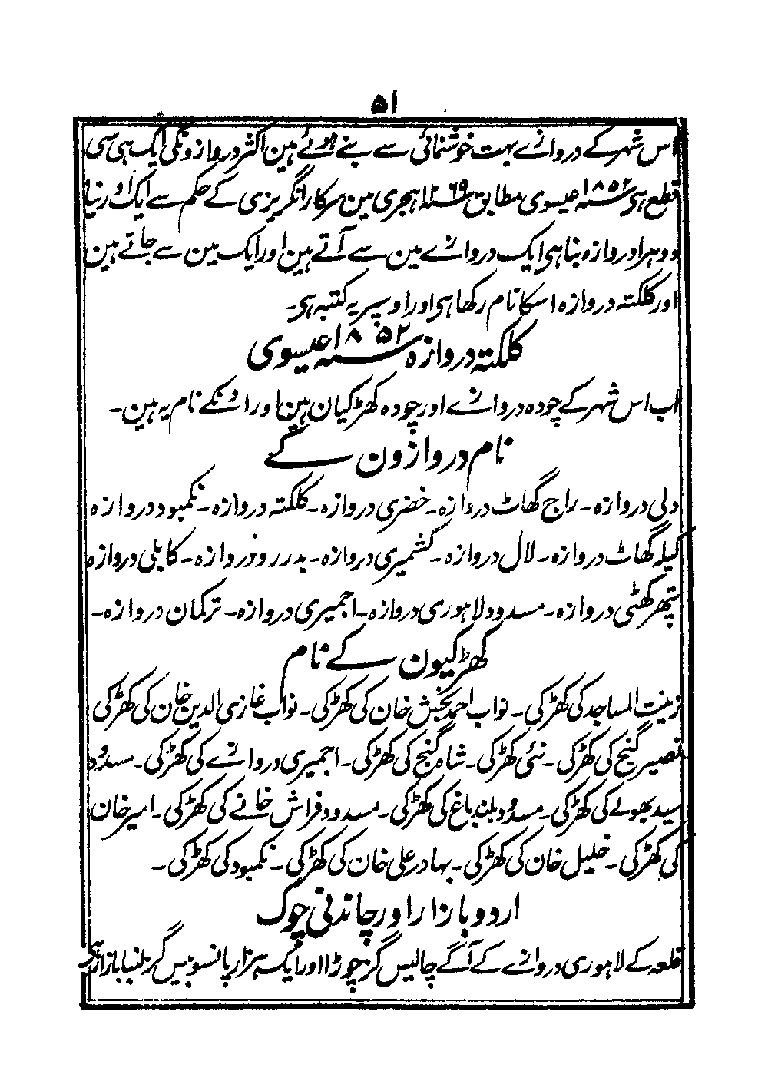 ۵۱
اس شہر کے دروازے بہت خوشنمائی سے بنے ہوئے ہین اکثر دروازونکی ایک ہی سی
قطع ہی ۱۸۵۲ سنہ عیسوی مطابق ۱۲۶۹ سنہ ہجری مین سرکار انگریزی کے حکم سے ایک اور نیا
دوہرا دروازہ بنا ہی ایک دروازے مین سے آتے ہین اور ایک مین سے جاتے ہین
اور کلکتہ دروازہ اسکا نام رکھا ہی اور اوسپر یہ کتبہ ہی۔
کلکتہ دروازہ سنہ ۱۸۵۲ عیسوی
اب اس شہر کے چودہ دروازے اور چودہ کھڑکیان ہین اور انکے نام یہ ہین۔
نام دروازون کے
دلی دروازہ۔ راج گھاٹ دروازہ۔ خضری دروازہ۔ کلکتہ دروازہ۔ نکمبود دروازہ
کیلہ گھاٹ دروازہ۔ لال دروازہ۔ کشمیری دروازہ۔ بدررو دروازہ۔ کابلی دروازہ
پتھر کھٹی دروازہ۔ مسدود لاہوری دروازہ۔ اجمیری دروازہ۔ ترکمان دروازہ۔
کھڑکیون کے نام
زینت المساجد کی کھڑکی۔ نواب احمد بخش خان کی کھڑکی۔ نواب غازی الدین خان کی کھڑکی
نصیر گنج کی کھڑکی۔ نئی کھڑکی۔ شاہ گنج کی کھڑکی۔ اجمیری دروازے کی کھڑکی۔ مسدود
سید بھولے کی کھڑکی۔ مسدود بلند باغ کی کھڑکی۔ مسدود فراش خانے کی کھڑکی۔ امیر خان
کی کھڑکی۔ خلیل خان کی کھڑکی۔ بہادر علی خان کی کھڑکی۔ نکمبود کی کھڑکی۔
اردو بازار اور چاندنی چوک
قلعہ کے لاہوری دروازے کے آگے چالیس گز چوڑا اور ایک ہزار پانسو بیس گز لنبا بازار ہی